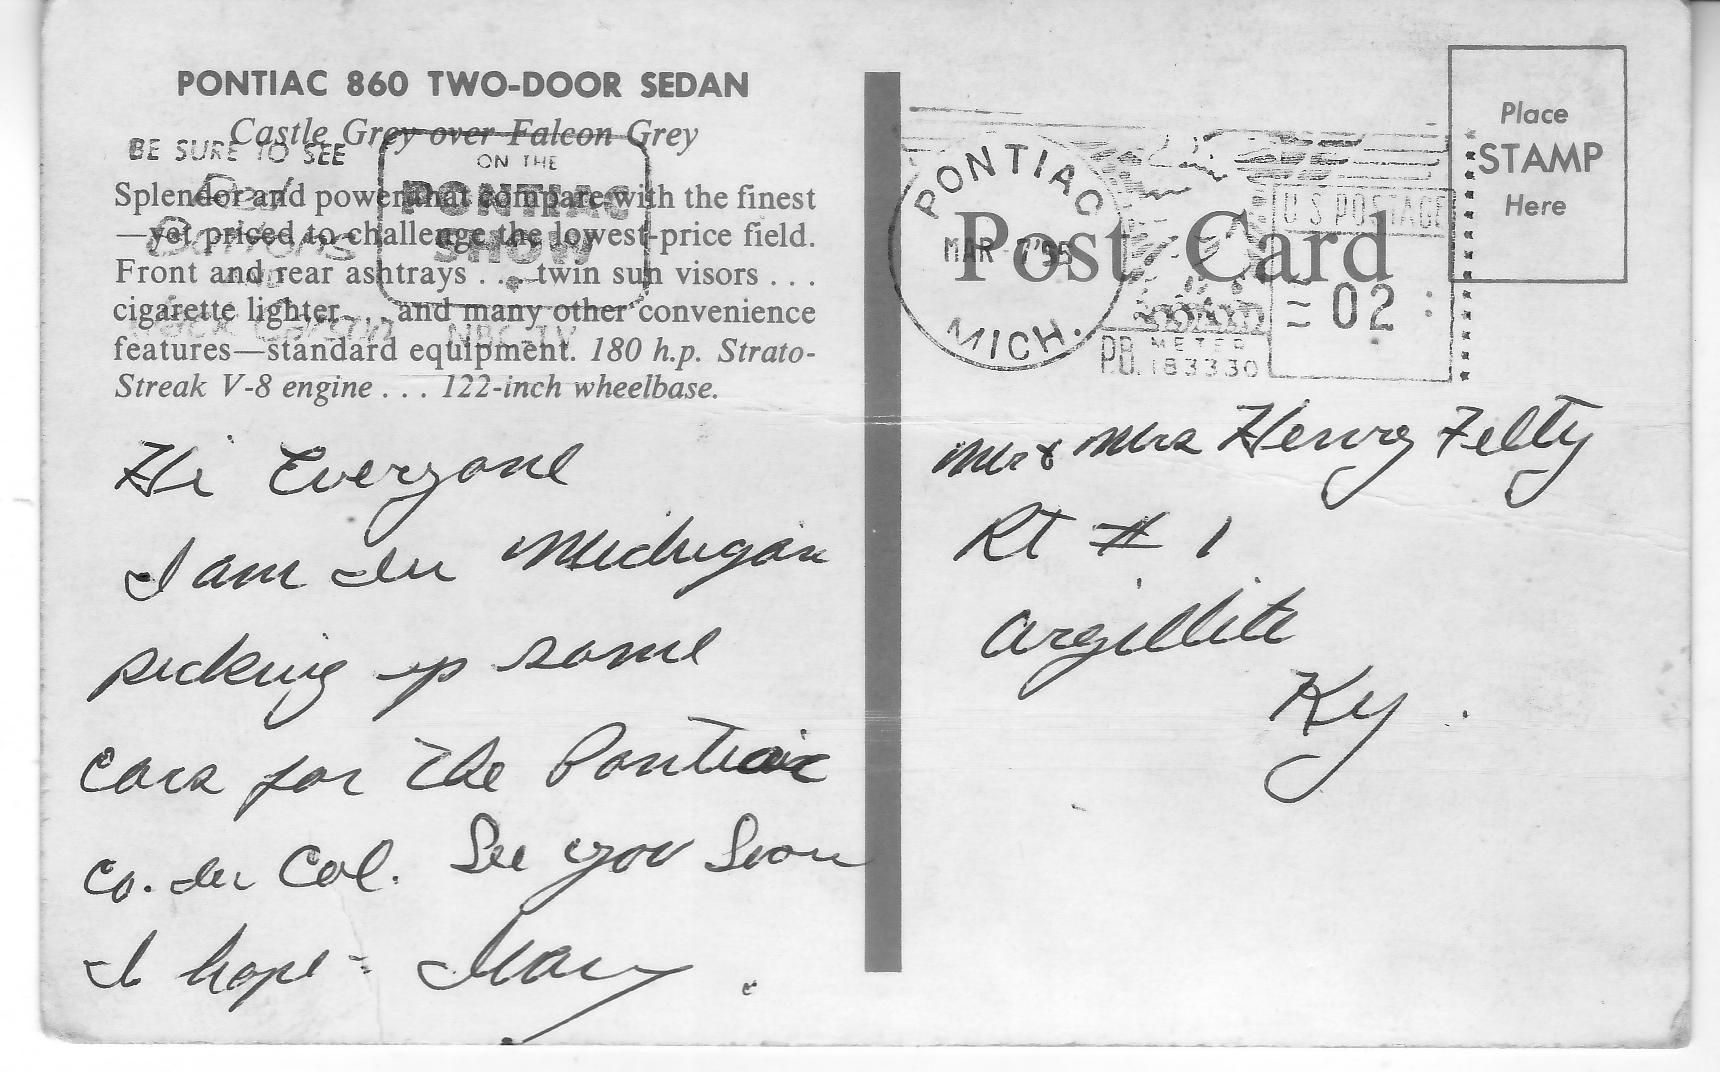 PONTIAC 860 TWO-DOOR SEDAN
Castle Grey over Falcon Grey
Splendor and power that compare with the finest
—yet priced to challenge the lowest-price field.
Front and rear ashtrays . . . twin sun visors . . .
cigarette lighter . . . and many other convenience
features—standard equipment. 180 h.p. Strato-
Streak V-8 engine . . . 122-inch wheelbase.
BE SURE TO SEE
Red
Buttons
Jack Carson
ON THE
PONTIAC
SHOW
NBC-TV
Hi Everyone
I am in Michigan
picking up some
cars for the Pontiac
Co. in Col. See you Soon
I hope - Mary.
Post Card
PONTIAC
MAR 7 '55
MICH.
U S POSTAGE
= 02
P.B. METER
183330
Place
STAMP
Here
Mr & Mrs Henry Felty
Rt # 1
Argillite
Ky.